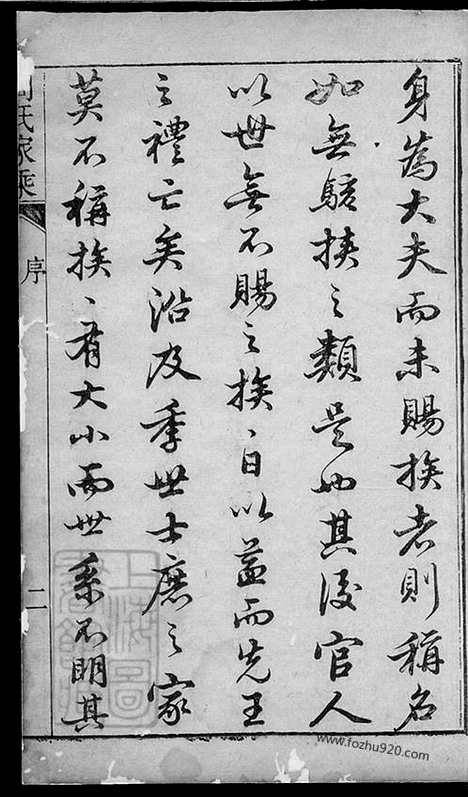 身為大夫而未賜族者則稱名
如無駭挾之類是也其後官人
以世無不賜之族〻日以益而先王
之禮亡矣沿及季世士庶之家
莫不稱族〻有大小而世系不明其
氏家乘
序
二
上海圖
www.fozhu920.com